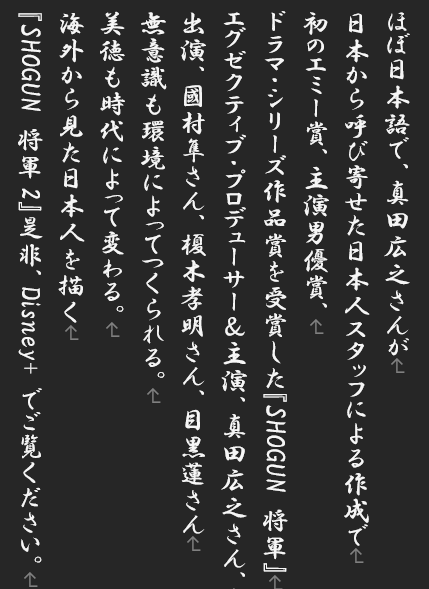 ほぼ日本語で、真田広之さんが
日本から呼び寄せた日本人スタッフによる作成で
初のエミー賞、主演男優賞、
ドラマ・シリーズ作品賞を受賞した『SHOGUN 将軍』
エグゼクティブ・プロデューサー&主演、真田広之さん、
出演、國村隼さん、榎木孝明さん、目黒蓮さん
無意識も環境によってつくられる。
美徳も時代によって変わる。
海外から見た日本人を描く
『SHOGUN 将軍 2』是非、Disney+ でご覧ください。